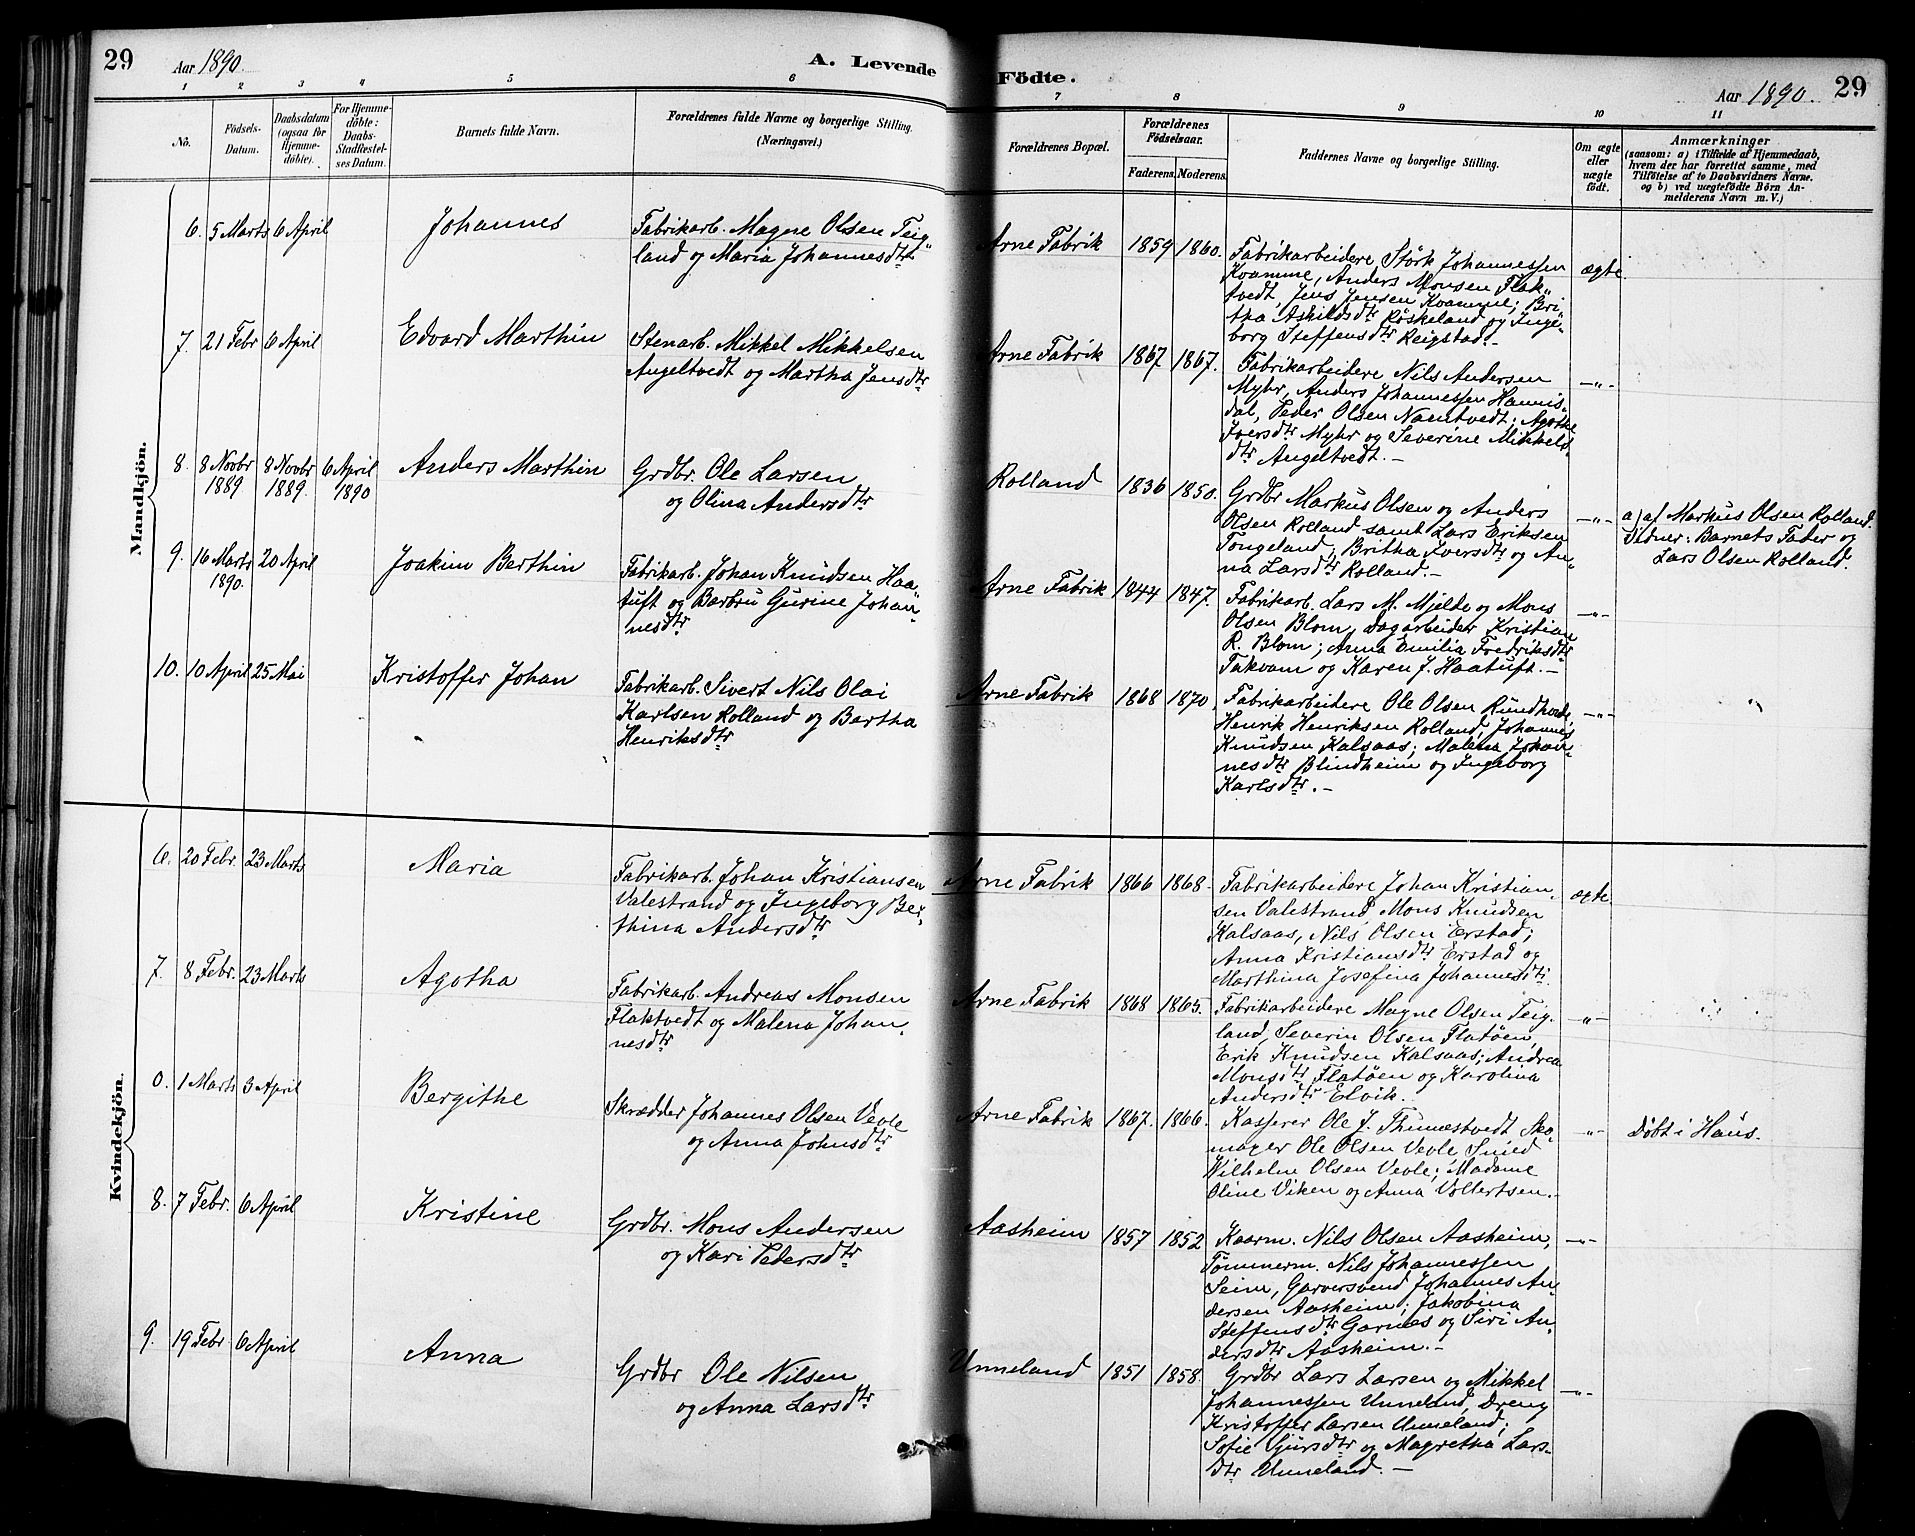 29 Aar 1890. A. Levende Födte. Aar 1890. 29
1 2 3 4 5 6 7 8 9 10 11
No.
Födsels-
Datum.
Daabsdatum
(ogsaa för
Hjemme-
döbte).
For Hjemme-
döbte:
Daabs-
Stadfæstel-
ses Datum.
Barnets fulde Navn.
Forældrenes fulde Navne og borgerlige Stilling.
(Næringsvei.)
Forældrenes Bopæl.
Forældrenes
Födselsaar.
Faderens. Moderens.
Faddernes Navne og borgerlige Stilling.
Om ægte
eller
uægte
födt.
Anmærkninger
(saasom: a) i Tilfælde af Hjemmedaab,
hvem der har forrettet samme, med
Tilföielse af to Daabsvidners Navne.
og b) ved uægtefödte Börn An-
melderens Navn m.V.)
Mandkjön.
6. 5 Marts 6 April Johannes
Fabrikarb. Magne Olsen Teig-
land og Maria Johannesdtr
Arne Fabrik 1859 1860.
Fabrikarbeidere Störk Johannessen
Kvamme, Anders Monsen Flak-
tvedt, Jens Jensen Kvamme; Bri-
tha Askildsdtr Röskeland og Inge-
borg Steffensdtr Reigstad.-
ægte
7. 21 Febr 6 April Edvard Marthin
Stenarb. Mikkel Mikkelsen
Angeltvedt og Martha Jensdtr
Arne Fabrik 1867 1867.
Fabrikarbeidere Nils Andersen
Myhr, Anders Johannessen Hannis-
dal, Peder Olsen Namtvedt; Agothe
Iversdtr Myhr og Severine Mikkels-
dtr Angeltvedt.-
-"-
8. 8 Novbr 8 Novbr 6 April Anders Marthin
1889 1889. 1890
Grdbr. Ole Larsen
og Olina Andersdtr
Rolland 1836 1850.
Grdbr Markus Olsen og Anders
Olsen Rolland samt Lars Eriksen
Tongeland; Britha Iversdtr og An-
na Larsdtr Rolland.-
-"-
a) af Markus Olsen Rolland.
Vidner: Barnets Fader og
Lars Olsen Rolland.
9. 16 Marts 20 April Joakim Berthin
1890.
Fabrikarb. Johan Knudsen Haa-
tuft og Barbru Gurine Johan-
nesdtr
Arne Fabrik 1844 1847.
Fabrikarb. Lars M. Mjelde og Mons
Olsen Blom, Dagarbeider Kristian
R. Blom; Anna Emilia Fredriksdtr
Takvam og Karen J. Haatuft.-
-"-
10. 10 April 25 Mai Kristoffer Johan
Fabrikarb. Sivert Nils Olai
Karlsen Rolland og Bertha
Henriksdtr
Arne Fabrik 1868 1870.
Fabrikarbeidere Ole Olsen Rundhovde,
Henrik Henriksen Rolland, Johannes
Knudsen Kalsaas; Malena Johan-
nesdtr Blindheim og Ingeborg
Karlsdtr.-
-"-
Kvindekjön.
6. 20 Febr. 23 Marts Maria
Fabrikarb. Johan Kristiansen
Valestrand og Ingeborg Ber-
thina Andersdtr
Arne Fabrik 1866 1868.
Fabrikarbeidere Johan Kristian-
sen Valestrand, Mons Knudsen
Kalsaas, Nils Olsen Erstad;
Anna Kristiansdtr Erstad og
Marthina Josefina Johannesdtr.
ægte
7. 8 Febr. 23 Marts Agotha
Fabrikarb. Andreas Monsen
Flaktvedt og Malena Johan-
nesdtr
Arne Fabrik 1868 1865.
Fabrikarbeidere Magne Olsen Teig-
land, Severin Olsen Flatöen,
Erik Knudsen Kalsaas; Andrea
Monsdtr Flatöen og Karolina
Andersdtr Elvik.
-"-
0. 1 Marts 3 April Bergithe
Skrædder Johannes Olsen Vevle
og Anna Johnsdtr
Arne Fabrik 1867. 1866.
Kasserer Ole J. Thunestvedt Sko-
mager Ole Olsen Vevle, Smed
Wilhelm Olsen Vevle; Madame
Oline Viken og Anna Vollertsen.-
-"-
Döbt i Haus.
8. 7 Febr. 6 April Kristine
Grdbr. Mons Andersen
og Kari Pedersdtr
Aasheim 1857 1852
Kaarm. Nils Olsen Aasheim,
Tömmerm. Nils Johannessen
Seim, Garversvend Johannes An-
dersen Aasheim; Jakobina
Steffensdtr Garnes og Siri An-
dersdtr Aasheim.-
-"-
9. 19 Febr 6 April Anna
Grdbr Ole Nilsen
og Anna Larsdtr
Unneland 1851 1858
Grdbr Lars Larsen og Mikkel
Johannessen Unneland, Dreng
Kristoffer Larsen Unneland;
Sofie Sjursdtr og Magretha Lars-
dtr Unneland.-
-"-